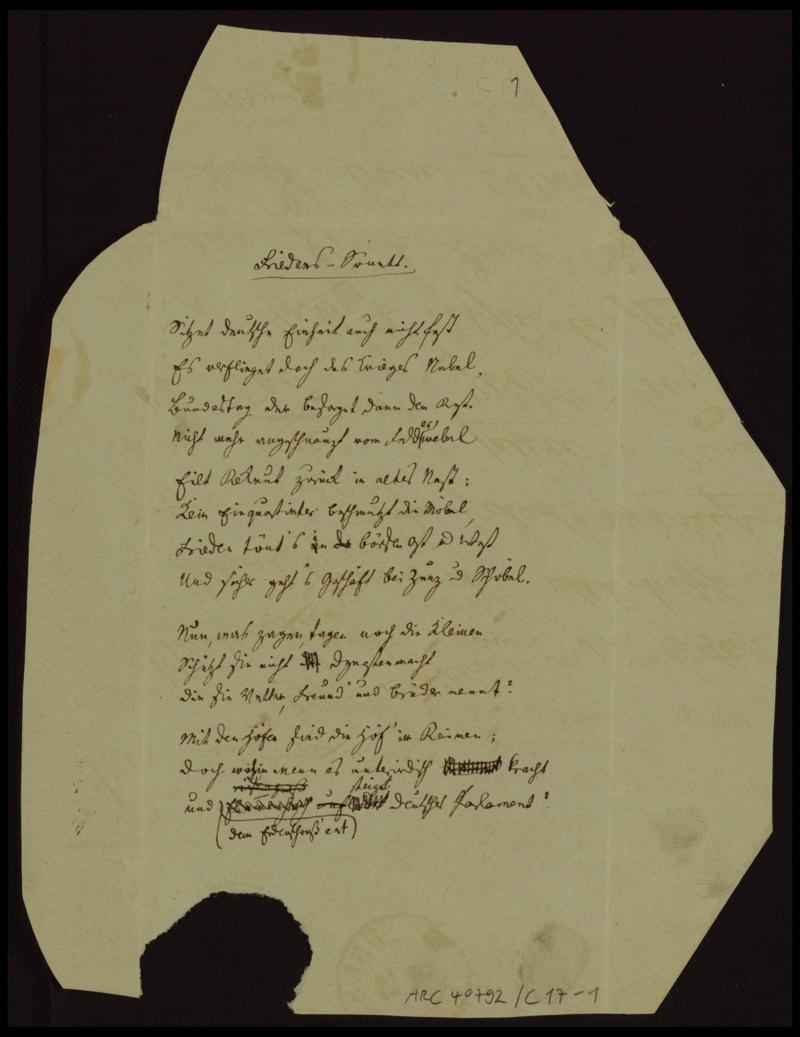 C 1
Friedens-Sonett.
Sitzet deutsche Einheit auch nicht fest
Es verflieget doch des Krieges Nebel,
Bundestag der besorget dann den Rest.
Nicht mehr angeschnauzt vom Feldwebel
Eilt Rekrut zurück in altes Nest;
Kein Einquartirter beschmutzt die Möbel,
Frieden tönt's in Börsen Ost u West
Und sicher geht's Geschäft bei Zunz u
Nun, was zagen, fragen noch die Kleinen
Schützt sie nicht Dynastenmacht
die sie Vetter, Freund und Bruder nennt?
Mit den Höfen sind die Höf' im Reinen;
doch wohin wenn es unterirdisch kracht
steiget
und deutsches Parlament?
(dem Erdenschooß ent)
ARC 40792 / C 17-1